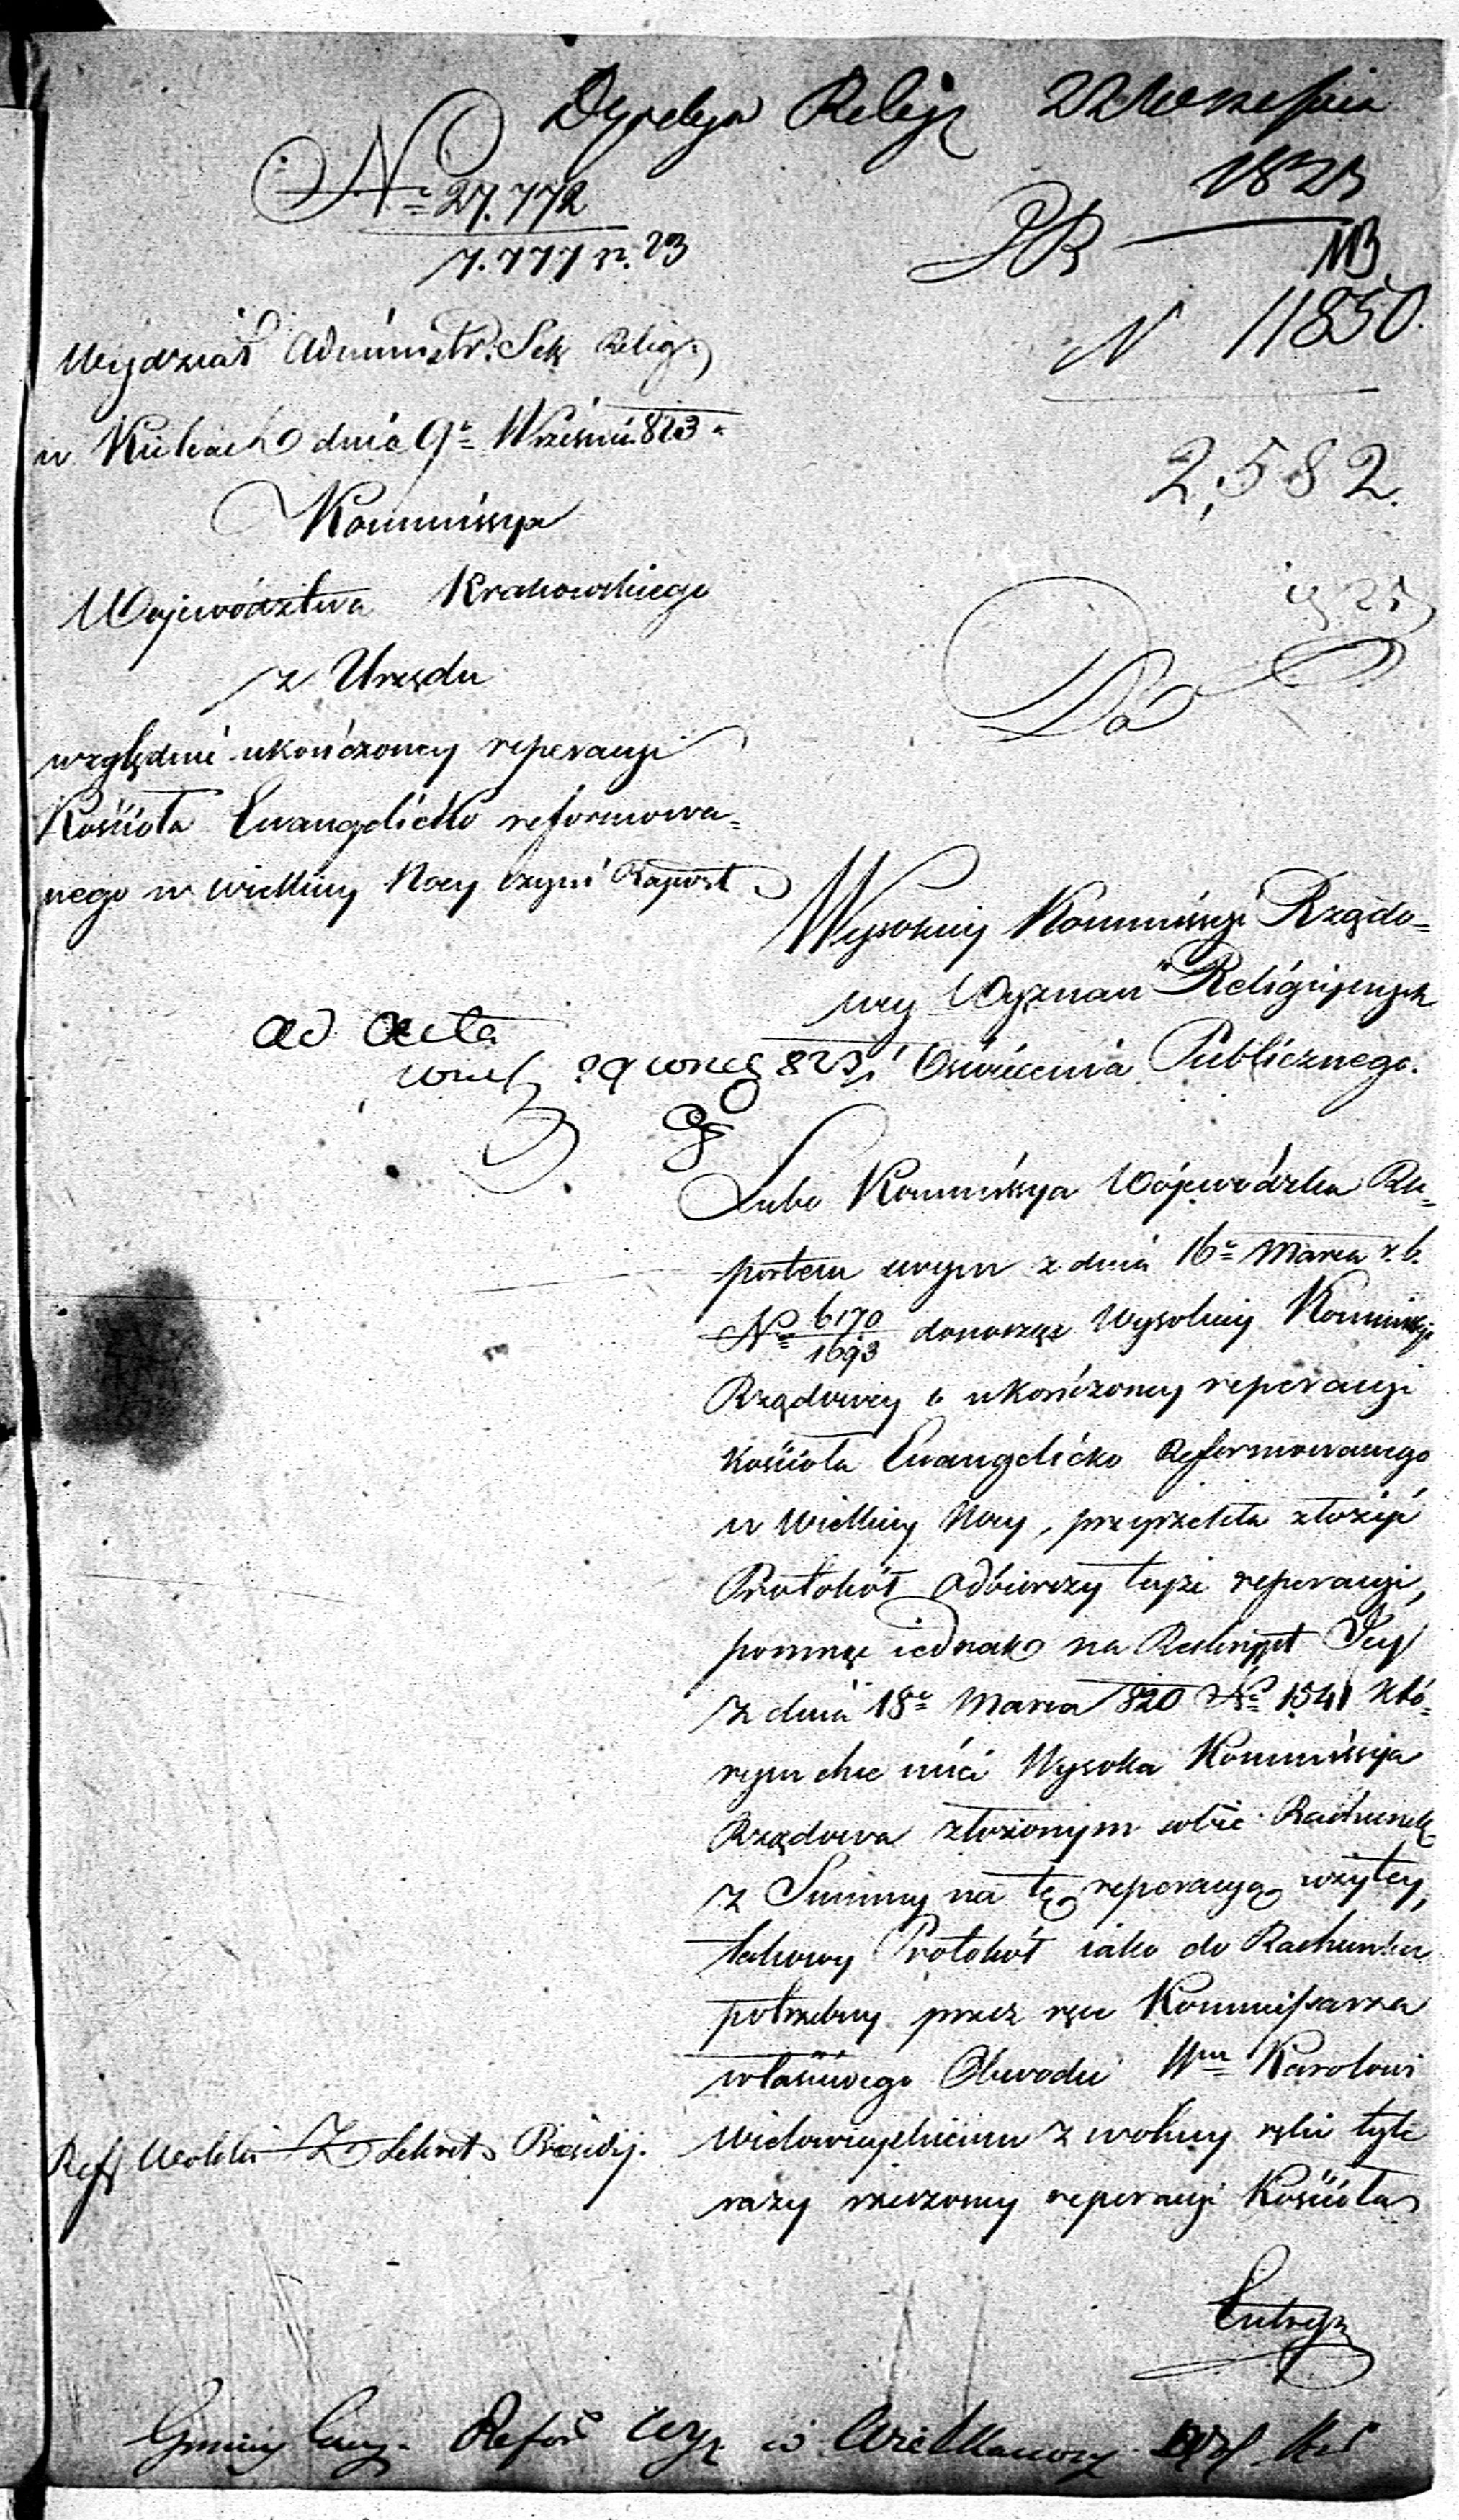 Dyrekcya Relig 22 Września
1823
№ 27.772
7.777 r. 23
N 11850.
Wydział Administr. Sek Relig.
w Kielcach dnia 9º Wrześnìa 823.
2,582.
Kommissya
Województwa Krakowskiego
z Urzędu
Do
względnie ukończoney reperacyi
Kościoła Ewangelicko reformowa=
nego w Wielkiey Nocy czyni Raport
Wysokiey Kommissyi Rządo=
wey Wyznań Religiynych
i Oświecenia Publicznego.
ad acta
823
Lubo Kommissya Wojewódzka Ra=
portem swym z dnia 16º Marca r. b.
№ 6170
1693
donosząc Wysokiey Kommissyi
Rządowey o ukończoney reperacyi
Kościoła Ewangelicko Reformowanego
w Wielkiey Nocy, przyrzekła złożyć
Protokół odbiorczy teyże reperacyi,
pomnąc iednak na Reskrypt Jey
z dnia 18º Marca 820 № 1541 któ=
rym chce mieć Wysoka Kommissya
Rządowa złożonym sobie Rachunek
z Summy na tę reperacyą użytey,
takowy Protokół iako do Rachunku
potrzebny przez ręce Kommissarza
właściwego Obwodu Wmu Karolowi
Wielowieyskiemu z wolney ręki tyle
razy rzeczoney reperacyi Kościoła
Sekret. Prezidy.
Gminy Ewg. Refor w Wielkanocy